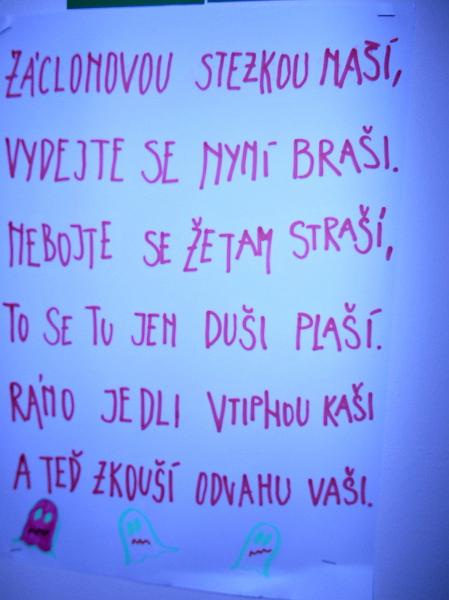 ZÁCLONOVOU STEZKOU NAŠÍ,
VYDEJTE SE NYNÍ BRAŠI.
NEBOJTE SE ŽETAM STRAŠÍ,
TO SE TU JEN DUŠI PLAŠÍ.
RÁNO JEDLI VTIPNOU KAŠI
A TEĎ ZKOUŠÍ ODVAHU VAŠI.